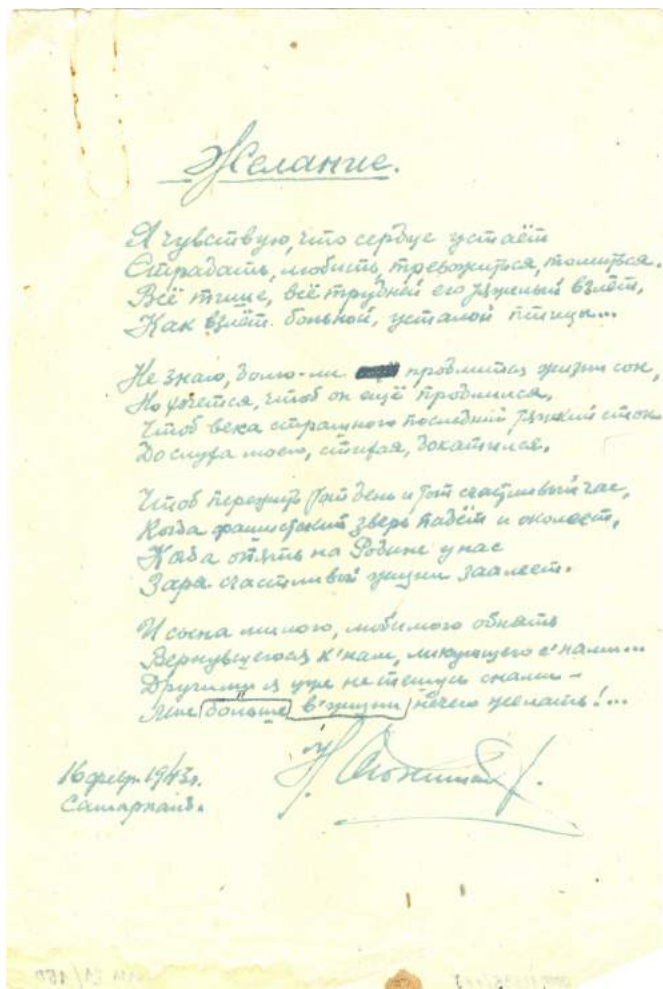 Желание.
Я чувствую, что сердце устаёт
Страдать, любить, тревожиться, томиться.
Всё тише, всё трудней его тяжелый взлёт,
Как взлёт больной, усталой птицы...
Не знаю, долго-ли продлится жизни сон,
Но хочется, чтоб он ещё продлился,
Чтоб века страшного последний тяжкий стон
До слуха моего, стихая, докатился.
Чтоб пережить тот день и тот счастливый час,
Когда фашистский зверь падёт и околеет,
Когда опять на Родине у нас
Заря счастливой жизни заалеет.
И сына милого, любимого обнять
Вернувшегося к'нам, ликующего с'нами...
Другими я уже не тешусь снами –
Мне больше в'жизни нечего желать!...
16 февр. 1943г.
Самарканд.